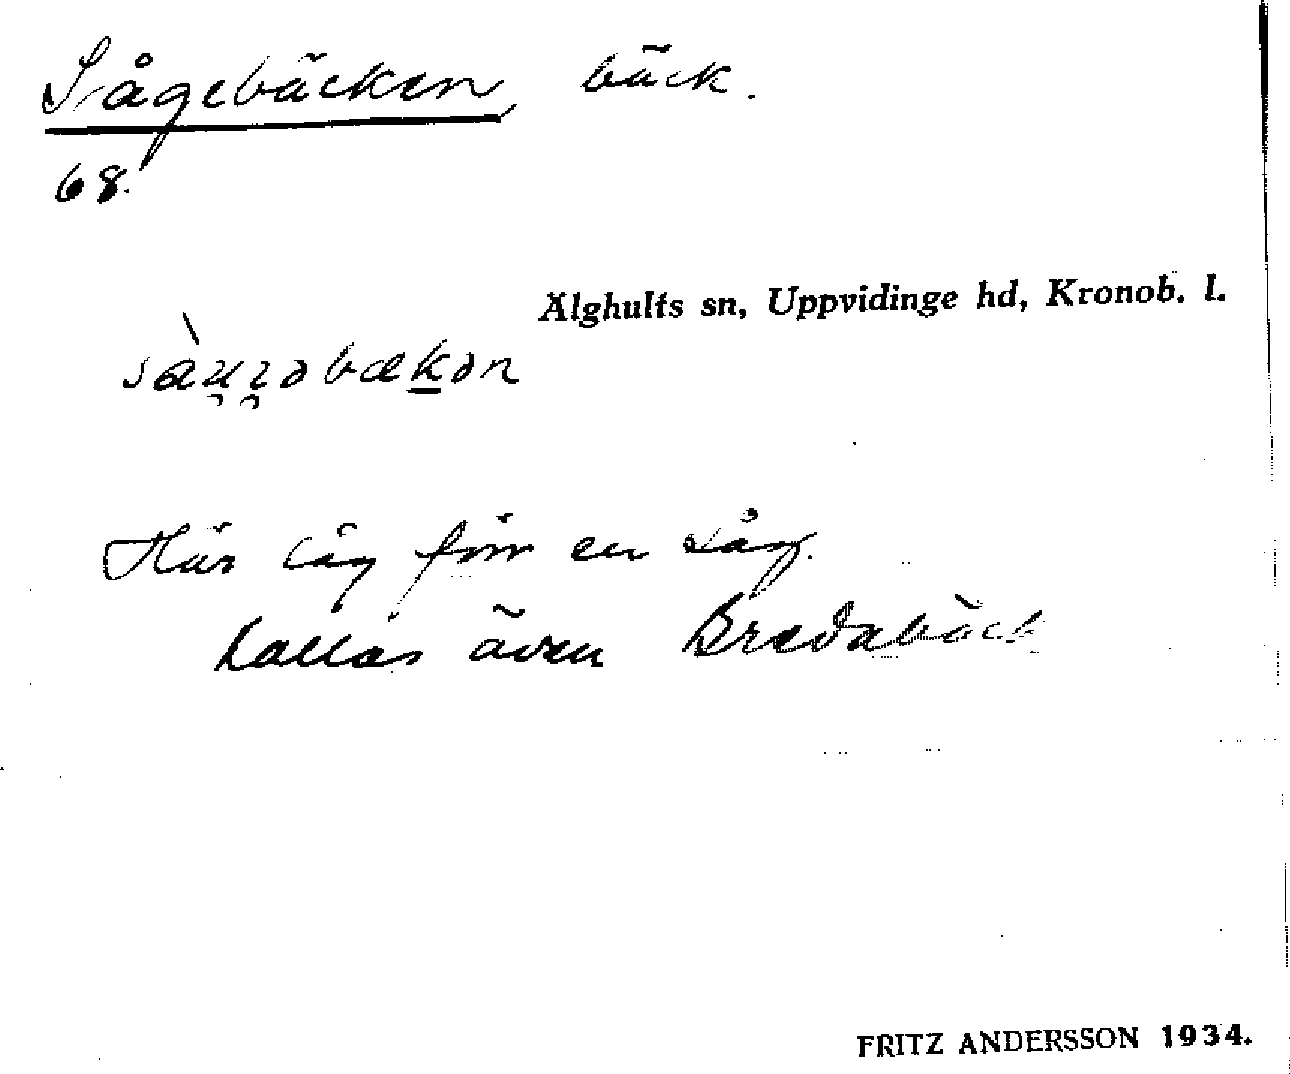 Sågebäcken, bäck.
68.
Älghults sn, Uppvidinge hd, Kronob. l.
Här låg förr en såg.
Kallas även Bredabäck
FRITZ ANDERSSON 1934.